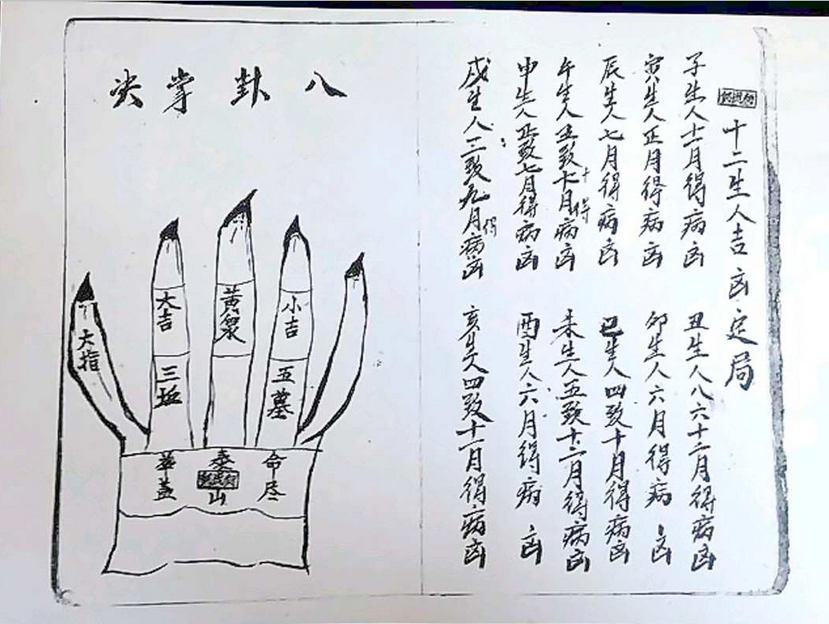 十二生人吉凶定局
子生人十一月得病凶
丑生人八六十二月得病凶
寅生人正月得病凶
卯生人六月得病凶
辰生人七月得病凶
巳生人四致十月得病凶
午生人五致十月得病凶
未生人五致十二月得病凶
申生人正致七月得病凶
酉生人六月得病凶
戌生人二致九月得病凶
亥生人四致十一月得病凶
八卦掌尖
小吉
黄泉
大吉
大指
五墓
三坵
命尽
泰山
華蓋